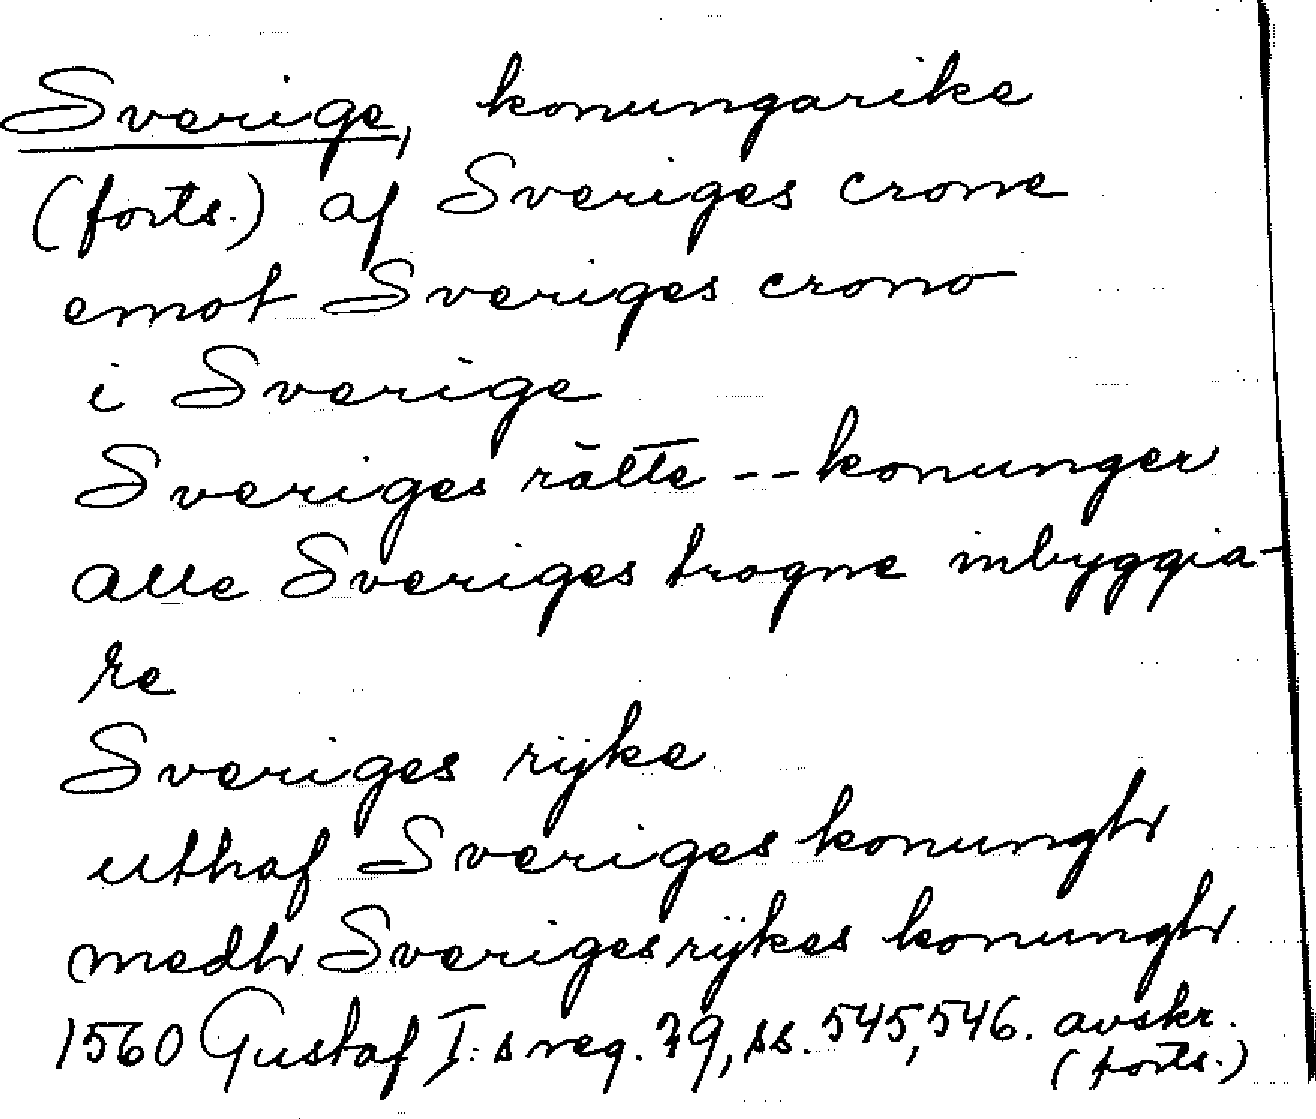 Sverige, konungarike
(forts.) af Sveriges crone
emot Sveriges crono
i Sverige
Sveriges rätte -- konunger
alle Sveriges trogne inbyggia-
re
Sveriges rijke
uthaf Sveriges konungh
medh Sveriges rijkes konungh
1560 Gustaf I:s reg. 29, ss. 545, 546. avskr.
(forts.)